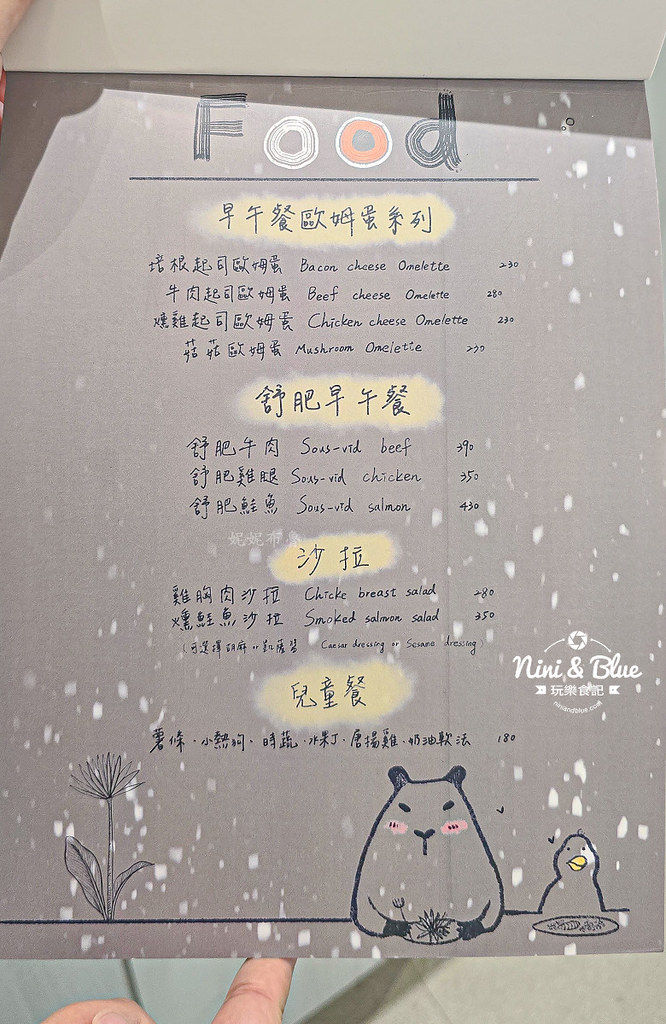 Food
早午餐歐姆蛋系列
培根起司歐姆蛋 Bacon cheese Omelette 230
牛肉起司歐姆蛋 Beef cheese Omelette 280
燻雞起司歐姆蛋 Chicken cheese Omelette 230
菇菇歐姆蛋 Mushroom Omelette
舒肥早午餐
舒肥牛肉 Sous-vid beef 390
舒肥雞腿 Sous-vid chicken 350
舒肥鮭魚 Sous-vid salmon 430
妮妮布魯
沙拉
雞胸肉沙拉 Chicke breast salad 280
燻鮭魚沙拉 Smoked salmon salad 350
(可選擇胡麻or凱薩醬 Caesar dressing or Sesame dressing)
Nini & Blue
玩樂食記
niniandblue.com
兒童餐
薯條、小熱狗、時蔬、水果丁、唐揚雞、奶油軟法 180